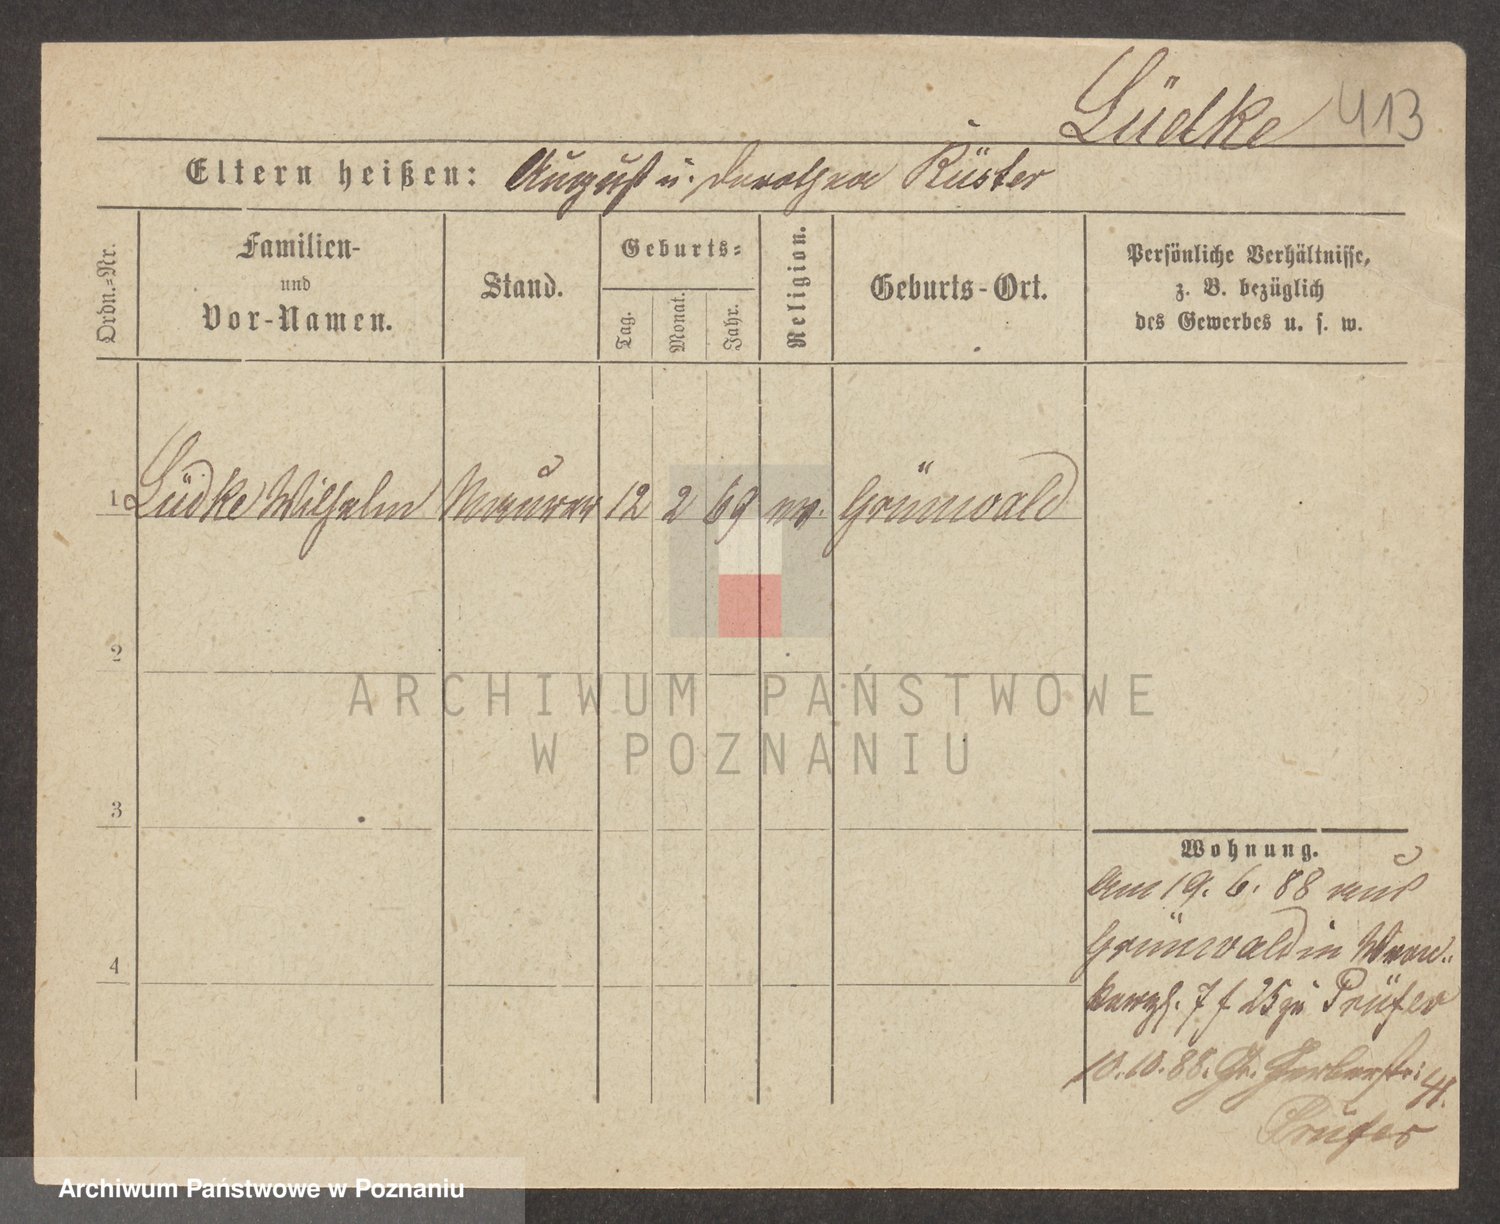 Lüdke 413
Eltern heißen: August u. Dorothea Rüster
Ordn.-Nr.
Familien-
und
Vor-Namen.
Stand.
Geburts-
Tag.
Monat.
Jahr.
Religion.
Geburts-Ort.
Persönliche Verhältnisse,
z. B. bezüglich
des Gewerbes u. s. w.
1 Lüdke Wilhelm Maurer 12 2 69 ev. Grünwald
2
3
4
Wohnung.
Am 19. 6. 88 aus
Grünwald in
25 zu Prüfer
10.10.88. Gr. Gerberstr. 41.
Prüfer
ARCHIWUM PAŃSTWOWE
W POZNANIU
Archiwum Państwowe w Poznaniu